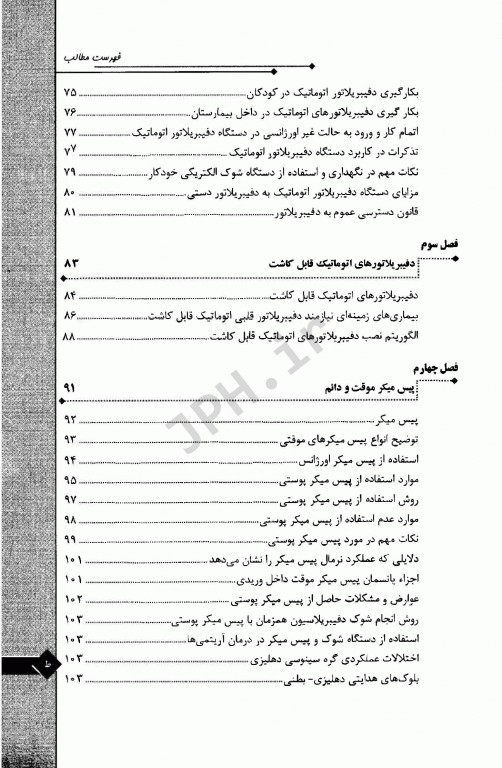 فهرست مطالب
بکارگیری دفیبریلاتور اتوماتیک در کودکان ۷۵
بکار گیری دفیبریلاتورهای اتوماتیک در داخل بیمارستان ۷۶
اتمام کار و ورود به حالت غیر اورژانسی در دستگاه دفیبریلاتور اتوماتیک ۷۷
تذکرات در کاربرد دستگاه دفیبریلاتور اتوماتیک ۷۷
نکات مهم در نگهداری و استفاده از دستگاه شوک الکتریکی خودکار ۷۹
مزایای دستگاه دفیبریلاتور اتوماتیک به دفیبریلاتور دستی ۸۰
قانون دسترسی عموم به دفیبریلاتور ۸۱
فصل سوم
دفیبریلاتورهای اتوماتیک قابل کاشت ۸۳
دفیبریلاتورهای اتوماتیک قابل کاشت ۸۴
بیماری‌های زمینه‌ای نیازمند دفیبریلاتور قلبی اتوماتیک قابل کاشت ۸۶
الگوریتم نصب دفیبریلاتورهای اتوماتیک قابل کاشت ۸۸
فصل چهارم
پیس میکر موقت و دائم ۹۱
پیس میکر ۹۲
توضیح انواع پیس میکرهای موقتی ۹۳
استفاده از پیس میکر اورژانس ۹۴
موارد استفاده از پیس میکر پوستی ۹۵
روش استفاده از پیس میکر پوستی ۹۷
موارد عدم استفاده از پیس میکر پوستی ۹۸
نکات مهم در مورد پیس میکر پوستی ۹۹
دلایلی که عملکرد نرمال پیس میکر را نشان می‌دهد ۱۰۱
اجزاء پانسمان پیس میکر موقت داخل وریدی ۱۰۱
عوارض و مشکلات حاصل از پیس میکر پوستی ۱۰۲
روش انجام شوک دفیبریلاسیون همزمان با پیس میکر پوستی ۱۰۳
استفاده از دستگاه شوک و پیس میکر در درمان آریتمی‌ها ۱۰۳
اختلالات عملکردی گره سینوسی دهلیزی ۱۰۳
بلوک‌های هدایتی دهلیزی- بطنی ۱۰۳
ط
JPH.ir